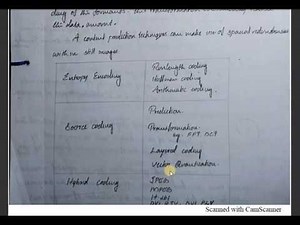 the data amount.
A content prediction technique can make use of spatial redundancies
within still images
Entropy Encoding
Runlength coding
Huffman coding
Arithmetic coding
Source coding
Prediction
Transformation
eg: FFT, DCT
Layered coding
Vector Quantization
Hybrid coding
JPEG
MPEG
Scanned with CamScanner